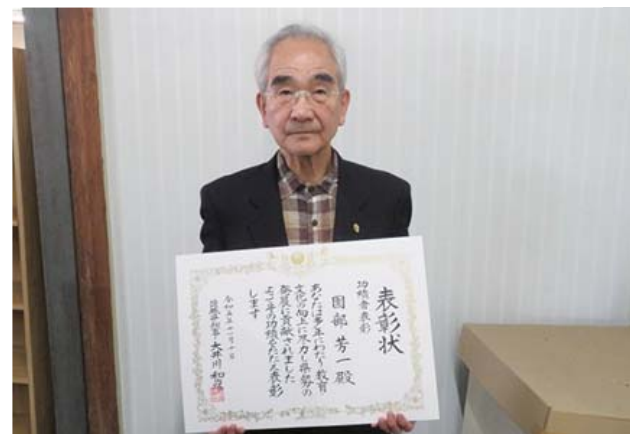 表彰状
功績者表彰
園部芳一殿
あなたは多年にわたり教育
文化の向上に尽力し県勢の
発展に貢献されました
よってその功績をたたえ表彰
します
令和五年十一月十日
茨城県知事 大井川和彦